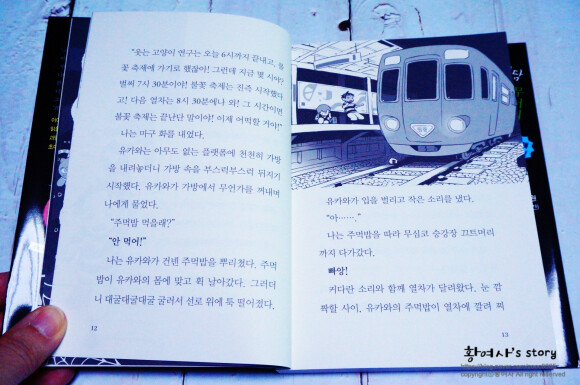 "웃는 고양이 연구는 오늘 6시까지 끝내고, 불
꽃 축제에 가기로 했잖아! 그런데 지금 몇 시야?
벌써 7시 30분이야! 불꽃 축제는 진즉 시작했다
고! 다음 열차는 8시 30분에나 와! 그 시간이면
불꽃 축제는 끝난단 말이야! 이제 어떡할 거야!"
나는 마구 화를 내었다.
유카와는 아무도 없는 플랫폼에 천천히 가방
을 내려놓더니 가방 속을 부스럭부스럭 뒤지기
시작했다. 유카와가 가방에서 무언가를 꺼내며
나에게 물었다.
"주먹밥 먹을래?"
"안 먹어!"
나는 유카와가 건넨 주먹밥을 뿌리쳤다. 주먹
밥이 유카와의 몸에 맞고 휙 날아갔다. 그러더
니 대굴대굴대굴 굴러서 선로 위에 툭 떨어졌다.
12
유카와가 입을 벌리고 작은 소리를 냈다.
"아……."
나는 주먹밥을 따라 무심코 승강장 끄트머리
까지 다가갔다.
빠앙!
커다란 소리와 함께 열차가 달려왔다. 눈 깜
짝할 사이, 유카와의 주먹밥이 열차에 깔려 찌
13
황여사's story
copyright(c) 황여사 All right reserved